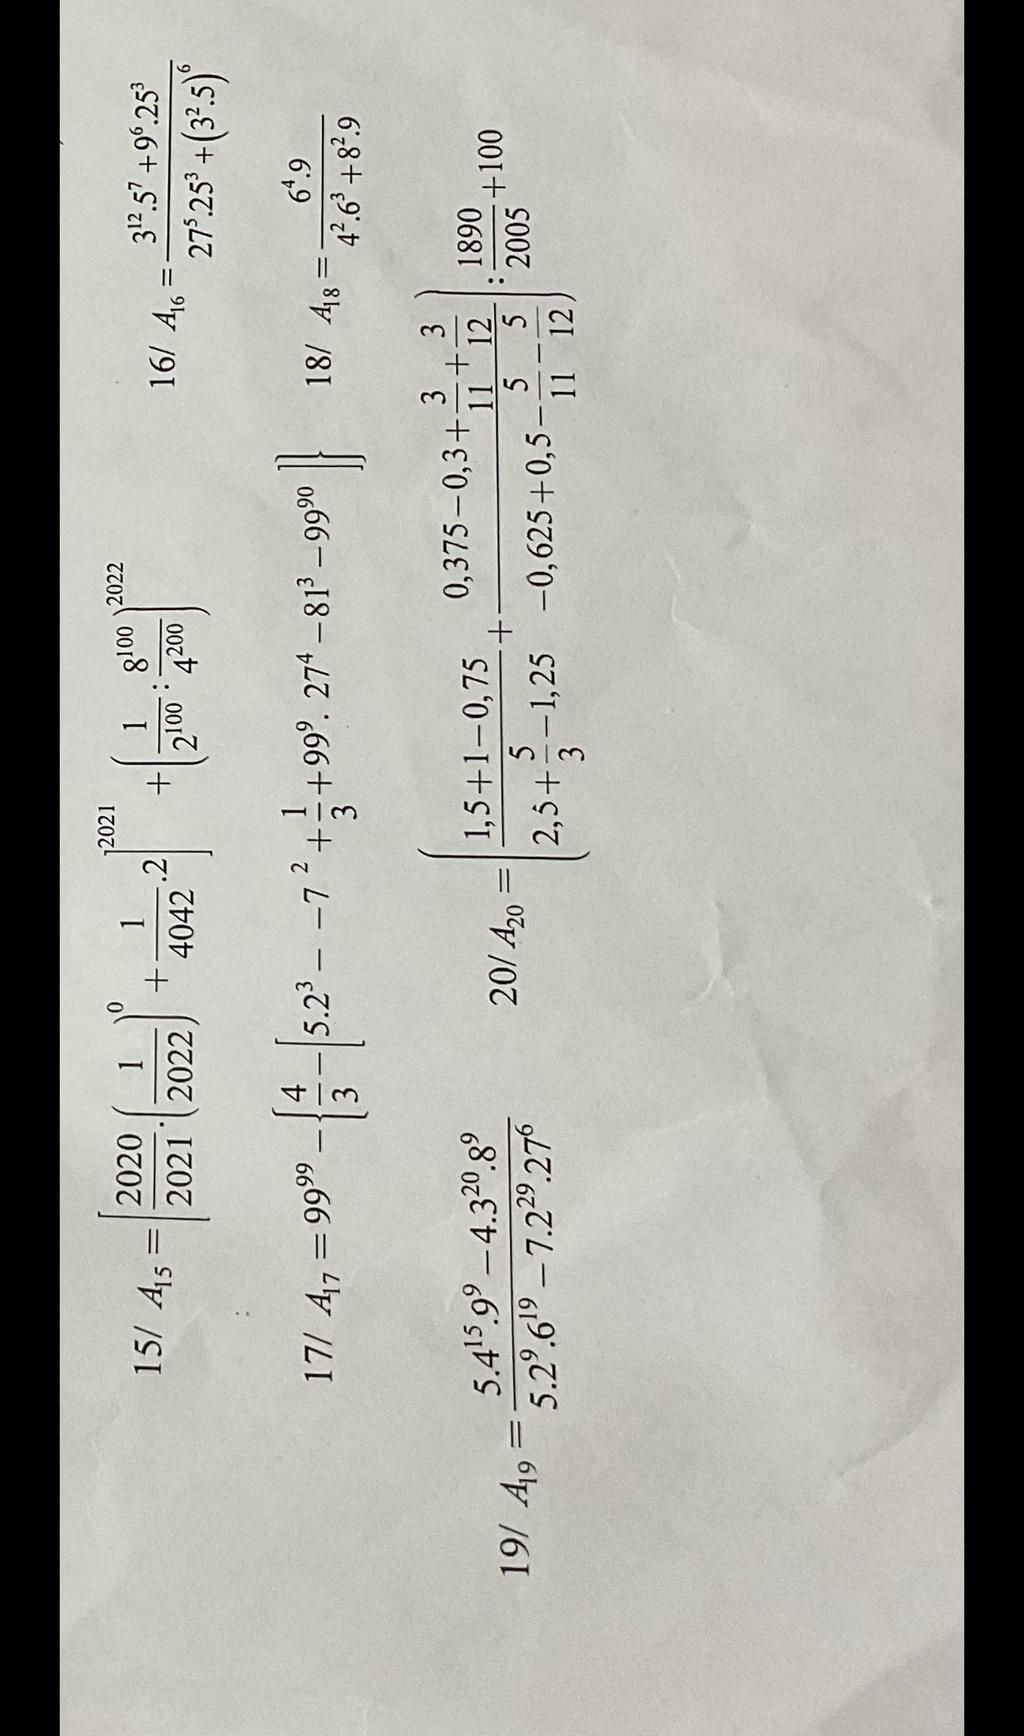 15/ A₁₅ = [2020/2021 . (1/2022)⁰ + 1/4042 .2]²⁰²¹ + (1/2¹⁰⁰ : 8¹⁰⁰/4²⁰⁰)²⁰²² 16/ A₁₆ = (3¹².5⁷ + 9⁶.25³)/(27⁵.25³ + (3².5)⁶)
17/ A₁₇ = 99⁹⁹ − {4/3 − [5.2³ − −7 ² + 1/3 + 99⁹. 27⁴ − 81³ − 99⁹⁰]} 18/ A₁₈ = (6⁴.9)/(4².6³ + 8².9)
19/ A₁₉ = (5.4¹⁵.9⁹ − 4.3²⁰.8⁹)/(5.2⁹.6¹⁹ − 7.2²⁹.27⁶) 20/ A₂₀ = ((1,5 + 1 − 0,75)/(2,5 + 5/3 − 1,25) + (0,375 − 0,3 + 3/11 + 3/12)/(−0,625 + 0,5 − 5/11 − 5/12)) : 1890/2005 + 100